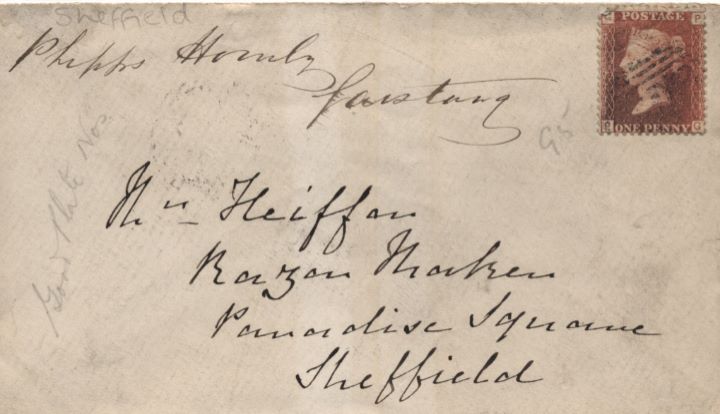 Sheffield
Phipps Hornby
Garstang
POSTAGE
ONE PENNY
95
Good Plate Nos
Mr Heiffor
Razor Maker
Paradise Square
Sheffield